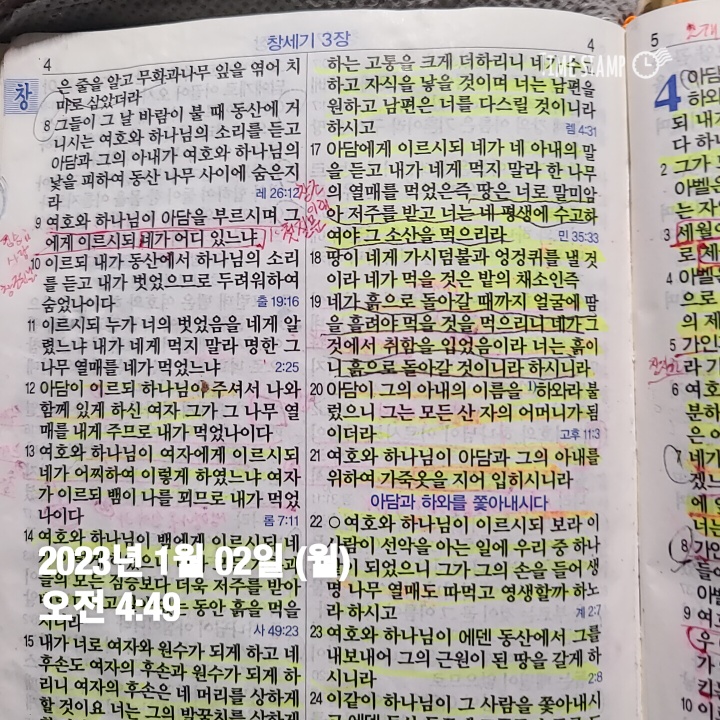 창세기 3장
4
4
5
창
은 줄을 알고 무화과나무 잎을 엮어 치
마로 삼았더라
8 그들이 그 날 바람이 불 때 동산에 거
니시는 여호와 하나님의 소리를 듣고
아담과 그의 아내가 여호와 하나님의
낯을 피하여 동산 나무 사이에 숨은지
라 레 26:12
9 여호와 하나님이 아담을 부르시며 그
에게 이르시되 네가 어디 있느냐
첫질문
10 이르되 내가 동산에서 하나님의 소리
를 듣고 내가 벗었으므로 두려워하여
숨었나이다 출 19:16
11 이르시되 누가 너의 벗었음을 네게 알
렸느냐 내가 네게 먹지 말라 명한 그
나무 열매를 네가 먹었느냐 2:25
12 아담이 이르되 하나님이 주셔서 나와
함께 있게 하신 여자 그가 그 나무 열
매를 내게 주므로 내가 먹었나이다
13 여호와 하나님이 여자에게 이르시되
네가 어찌하여 이렇게 하였느냐 여자
가 이르되 뱀이 나를 꾀므로 내가 먹었
나이다 롬 7:11
14 여호와 하나님이 뱀에게 이르시되 네
들의 모든 짐승보다 더욱 저주를 받아
동안 흙을 먹을
니라 사 49:23
15 내가 너로 여자와 원수가 되게 하고 네
후손도 여자의 후손과 원수가 되게 하
리니 여자의 후손은 네 머리를 상하게
할 것이요 너는 그의 발꿈치를 상하게
하는 고통을 크게 더하리니 네가
하고 자식을 낳을 것이며 너는 남편을
원하고 남편은 너를 다스릴 것이니라
하시고 렘 4:31
17 아담에게 이르시되 네가 네 아내의 말
을 듣고 내가 네게 먹지 말라 한 나무
의 열매를 먹었은즉 땅은 너로 말미암
아 저주를 받고 너는 네 평생에 수고하
여야 그 소산을 먹으리라 민 35:33
18 땅이 네게 가시덤불과 엉겅퀴를 낼 것
이라 네가 먹을 것은 밭의 채소인즉
19 네가 흙으로 돌아갈 때까지 얼굴에 땀
을 흘려야 먹을 것을 먹으리니 네가 그
것에서 취함을 입었음이라 너는 흙이
니 흙으로 돌아갈 것이니라 하시니라
20 아담이 그의 아내의 이름을 하와라 불
렀으니 그는 모든 산 자의 어머니가 됨
이더라 고후 11:3
21 여호와 하나님이 아담과 그의 아내를
위하여 가죽옷을 지어 입히시니라
아담과 하와를 쫓아내시다
22 ○여호와 하나님이 이르시되 보라 이
사람이 선악을 아는 일에 우리 중 하나
같이 되었으니 그가 그의 손을 들어 생
명 나무 열매도 따먹고 영생할까 하노
라 하시고 계 2:7
23 여호와 하나님이 에덴 동산에서 그를
내보내어 그의 근원이 된 땅을 갈게 하
시니라 2:8
24 이같이 하나님이 그 사람을 쫓아내시
고 에덴 동산 동쪽에
4 아담
하와
되 내
2 그가
아벨은
는 자
3 세월
로
4 아벨
의 제
5 가인
라 가
6
분하
은 어
7 네가
겠느
에
너는
8 가인
들에
아벨
9 여호
10 이르
TIMESTAMP
2023년 1월 02일 (월)
오전 4:49